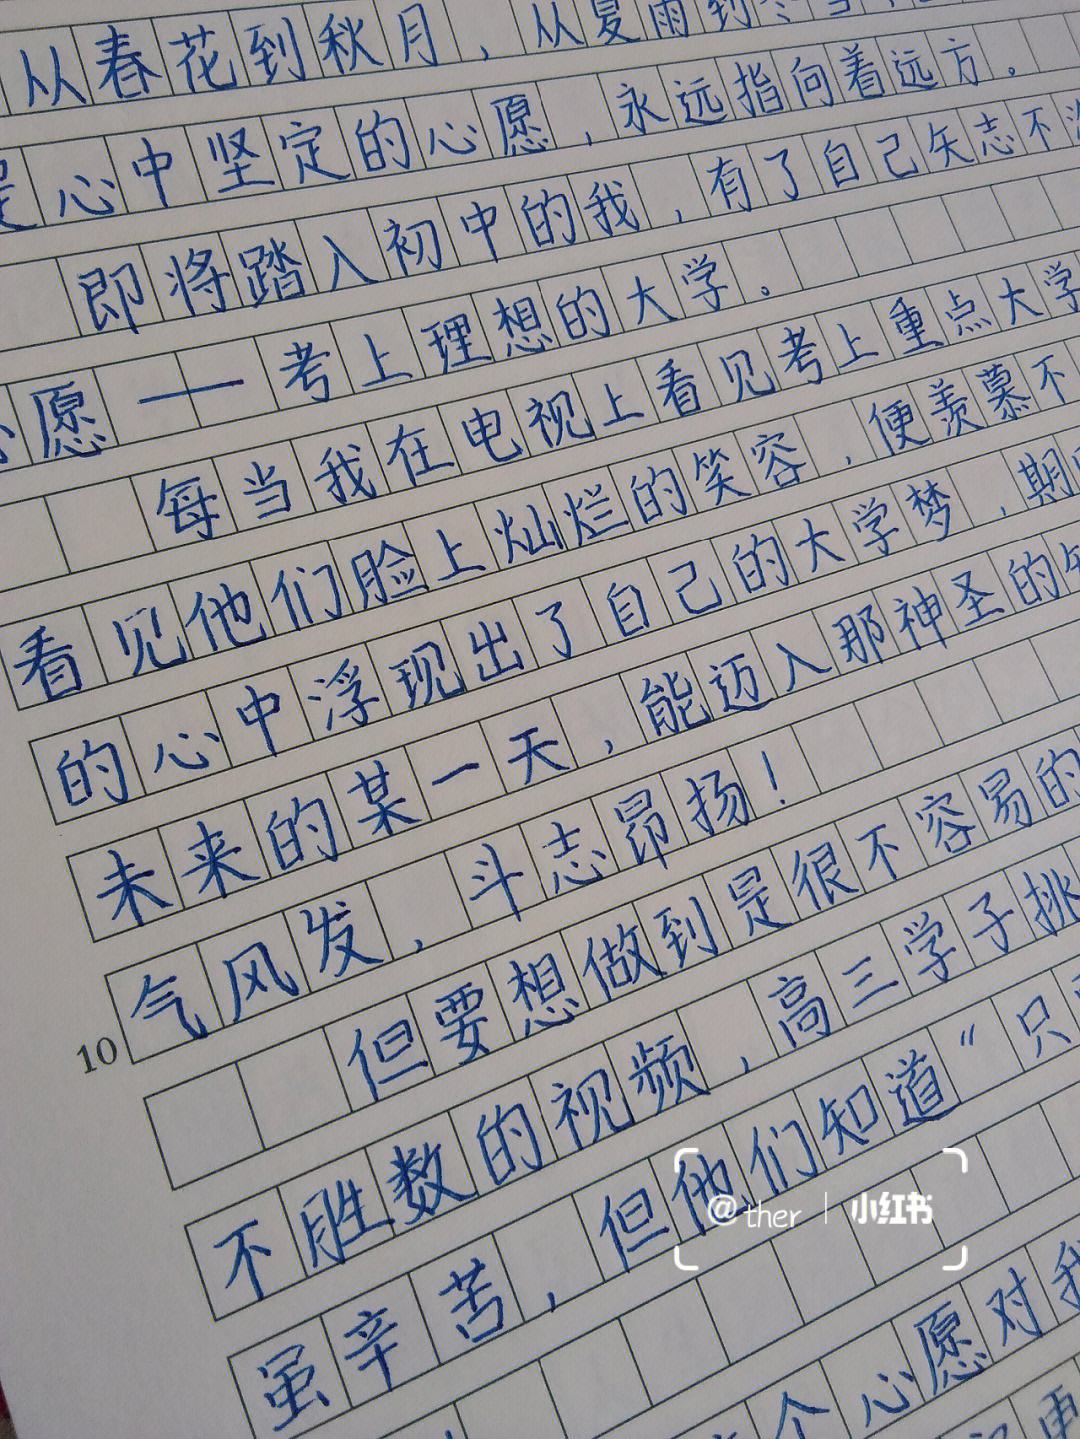 从春花到秋月，从夏雨到冬雪，
心中坚定的心愿，永远指向着远方。
即将踏入初中的我，有了自己矢志不
心愿——考上理想的大学。
每当我在电视上看见考上重点大学
看见他们脸上灿烂的笑容，便羡慕不
的心中浮现出了自己的大学梦，期
未来的某一天，能迈入那神圣的
气风发，斗志昂扬！
10
但要想做到是很不容易的
不胜数的视频，高三学子挑
虽辛苦，但他们知道“只
个心愿对我
@ther | 小红书